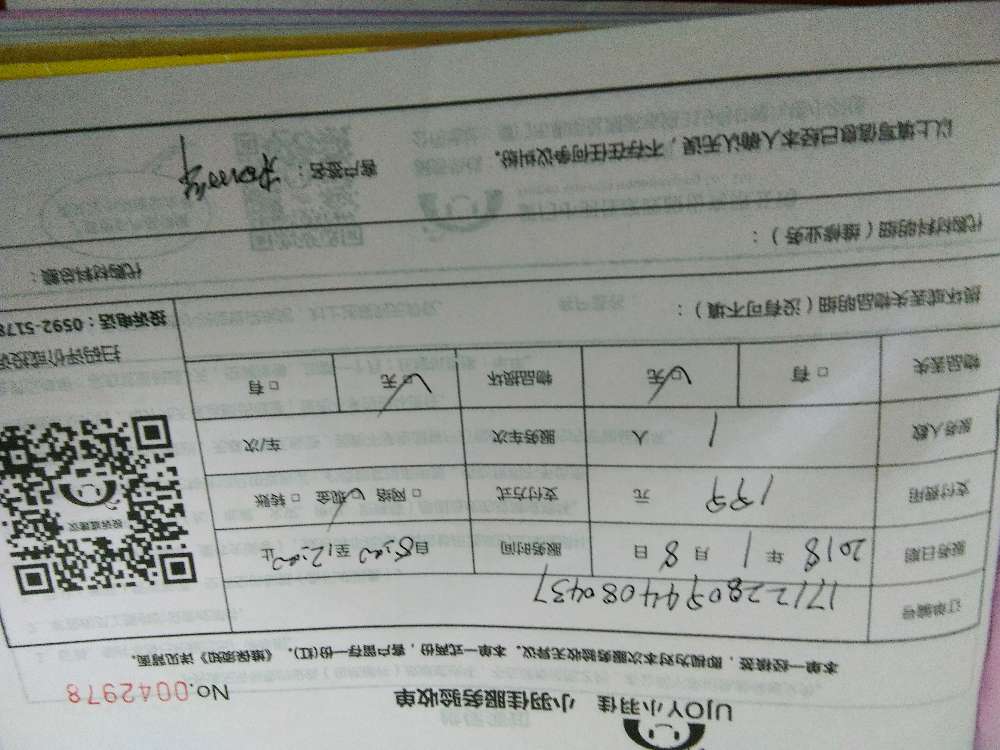 UJOY小羽佳 小羽佳服务验收单
No.0042978
本单一经接签，即视为对本次服务验收无异议。本单一式两份，客户留存一份(红)。《维保须知》详见背面。
订单编号 1712280944080437
服务日期 2018 年 1 月 8 日 服务时间 自 8:00 至 12:00 止
支付费用 199 元 支付方式 □ 网络 ☑ 现金 □ 转账
服务人数 1 人 服务车次 车/次
物品丢失 □ 有 ☑ 无 物品损坏 ☑ 无 □ 有
投诉或建议
扫码评价或投诉
投诉电话：0592-5178
损坏或丢失物品明细（没有可不填）：
代购材料明细（维修业务）：
代购材料总额：
以上填写信息已经本人确认无误，不存在任何争议纠纷。
客户签名：